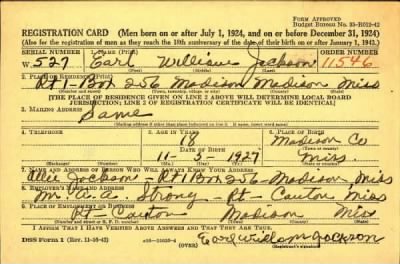 FORM APPROVED
Budget Bureau No. 33-R012-42
REGISTRATION CARD (Men born on or after July 1, 1924, and on or before December 31, 1924)
(Also for the registration of men as they reach the 18th anniversary of the date of their birth on or after January 1, 1943.)
SERIAL NUMBER 1. NAME (Print) ORDER NUMBER
W 527 Earl William Jackson 11546
(First) (Middle) (Last)
2. PLACE OF RESIDENCE (Print)
Rt 1 Box 256 Madison Madison Miss
(Number and street) (Town, township, village, or city) (County) (State)
[THE PLACE OF RESIDENCE GIVEN ON LINE 2 ABOVE WILL DETERMINE LOCAL BOARD
JURISDICTION; LINE 2 OF REGISTRATION CERTIFICATE WILL BE IDENTICAL]
3. MAILING ADDRESS
Same
4. TELEPHONE 5. AGE IN YEARS 6. PLACE OF BIRTH
18 Madison Co
DATE OF BIRTH
11-5-1927 Miss
(Exchange) (Number) (Mo.) (Day) (Yr.) (State or country)
7. NAME AND ADDRESS OF PERSON WHO WILL ALWAYS KNOW YOUR ADDRESS
Jackson - Rt 1 Box 256 - Madison Miss
8. EMPLOYER'S NAME AND ADDRESS
Strong - Rt - Canton Miss
9. PLACE OF EMPLOYMENT OR BUSINESS
Rt - Canton Madison Miss
(Town) (County) (State)
I AFFIRM THAT I HAVE VERIFIED ABOVE ANSWERS AND THAT THEY ARE TRUE.
DSS Form 1 (OVER)
Earl William Jackson